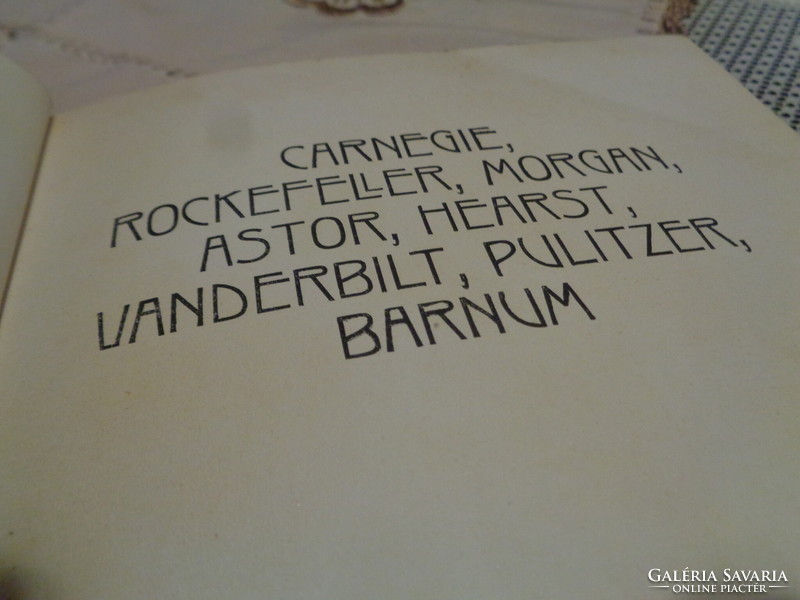 CARNEGIE,
ROCKEFELLER, MORGAN,
ASTOR, HEARST,
VANDERBILT, PULITZER,
BARNUM
GALÉRIA SAVARIA
ONLINE PIACTÉR